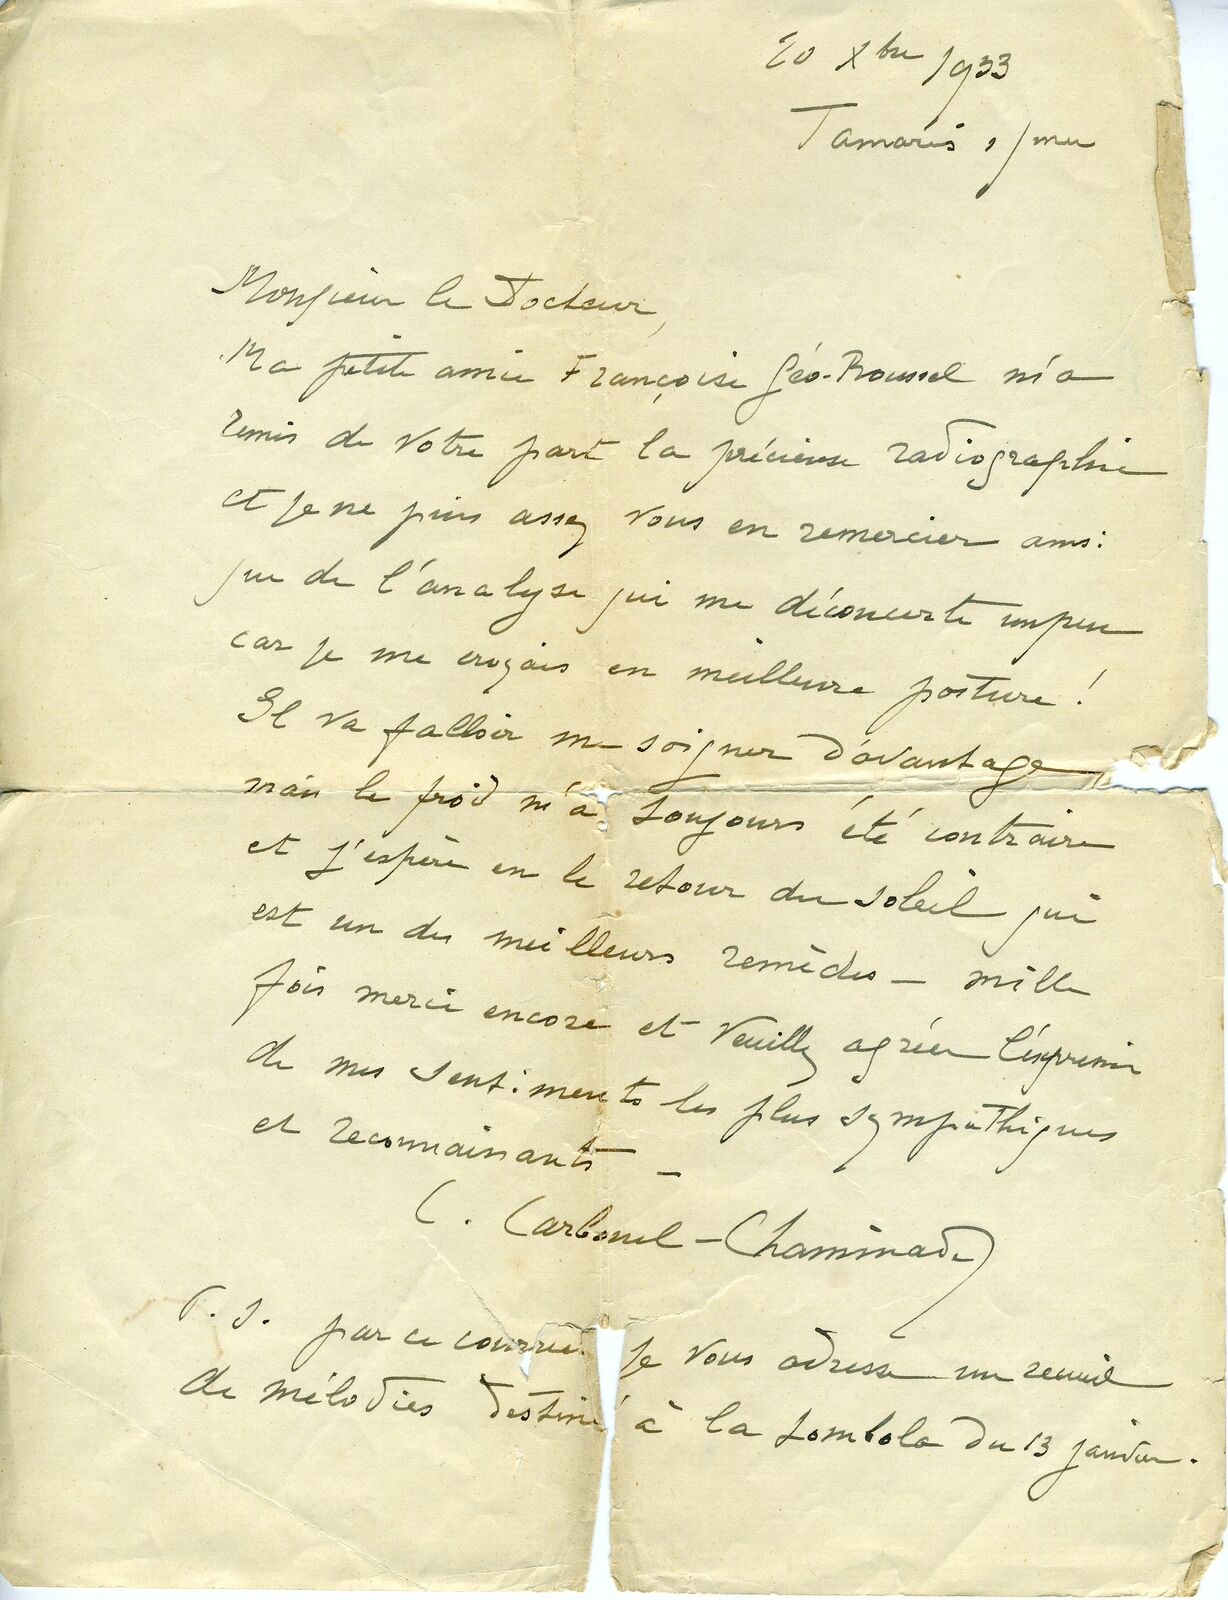 20 Xbre 1933
Tamaris s/mer
Monsieur le Docteur,
Ma petite amie Françoise Géo-Roussel m'a
remis de votre part la précieuse radiographie
et je ne puis assez vous en remercier ainsi
que de l'analyse qui me déconcerte un peu
car je me croyais en meilleure posture !
Il va falloir me soigner d'avantage
mais le froid m'a toujours été contraire
et j'espère en le retour du soleil qui
est un des meilleurs remèdes — mille
fois merci encore et veuillez agréer l'expression
de mes sentiments les plus sympathiques
et reconnaissants —
C. Carbonel-Chaminade
P. S. par ce courrier je vous adresse un recueil
de mélodies destiné à la tombola du 13 janvier.